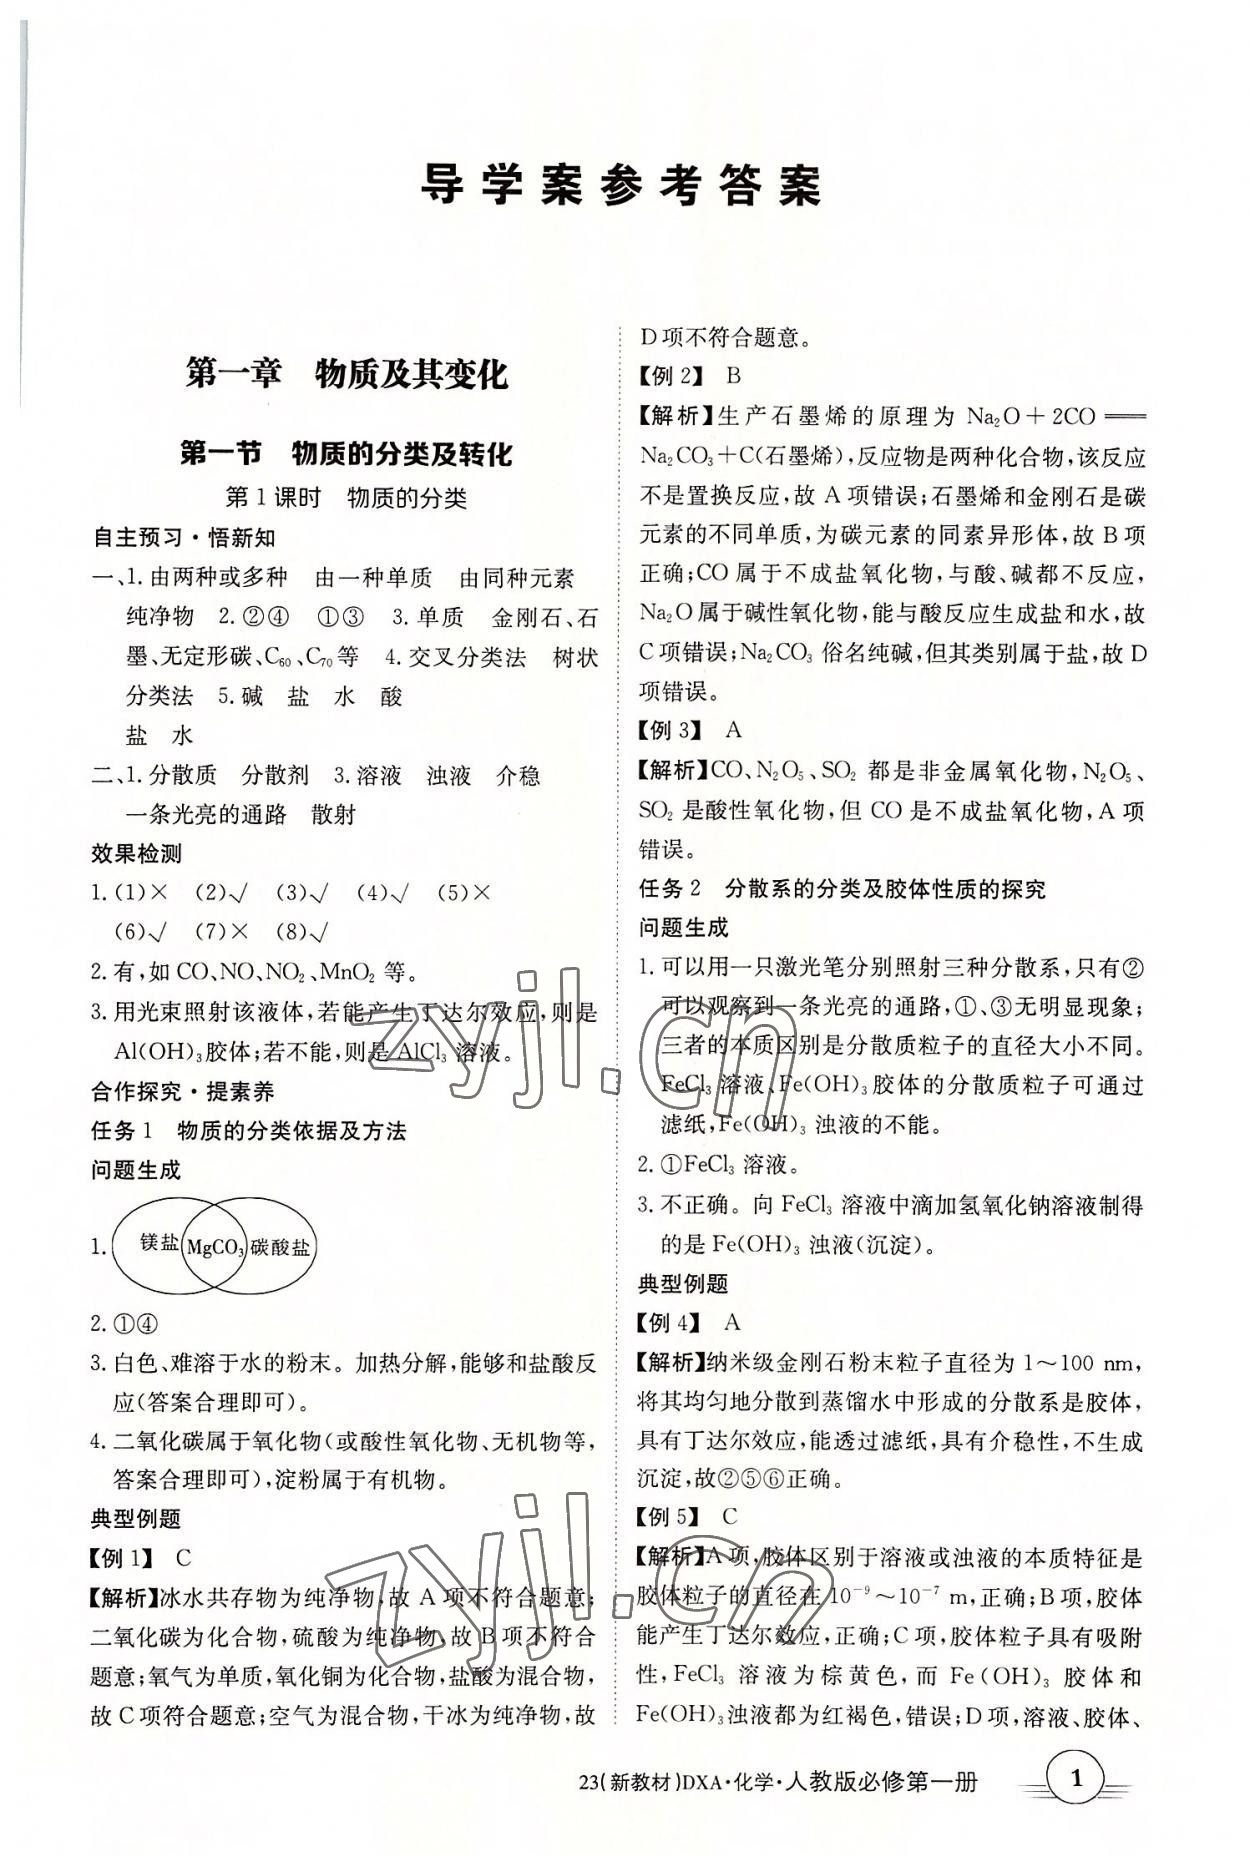 导学案参考答案
第一章　物质及其变化
第一节　物质的分类及转化
第1课时　物质的分类
自主预习·悟新知
一、1.由两种或多种　由一种单质　由同种元素
纯净物　2.②④　①③　3.单质　金刚石、石
墨、无定形碳、C₆₀、C₇₀等　4.交叉分类法　树状
分类法　5.碱　盐　水　酸
盐　水
二、1.分散质　分散剂　3.溶液　浊液　介稳
一条光亮的通路　散射
效果检测
1.(1)×　(2)√　(3)√　(4)√　(5)×
(6)√　(7)×　(8)√
2.有,如CO、NO、NO₂、MnO₂等。
3.用光束照射该液体,若能产生丁达尔效应,则是
Al(OH)₃胶体;若不能,则是AlCl₃溶液。
合作探究·提素养
任务1　物质的分类依据及方法
问题生成
1. 镁盐 MgCO₃ 碳酸盐
2.①④
3.白色、难溶于水的粉末。加热分解,能够和盐酸反
应(答案合理即可)。
4.二氧化碳属于氧化物(或酸性氧化物、无机物等,
答案合理即可),淀粉属于有机物。
典型例题
【例1】　C
【解析】冰水共存物为纯净物,故A项不符合题意;
二氧化碳为化合物,硫酸为纯净物,故B项不符合
题意;氧气为单质,氧化铜为化合物,盐酸为混合物,
故C项符合题意;空气为混合物,干冰为纯净物,故
D项不符合题意。
【例2】　B
【解析】生产石墨烯的原理为Na₂O+2CO══
Na₂CO₃+C(石墨烯),反应物是两种化合物,该反应
不是置换反应,故A项错误;石墨烯和金刚石是碳
元素的不同单质,为碳元素的同素异形体,故B项
正确;CO属于不成盐氧化物,与酸、碱都不反应,
Na₂O属于碱性氧化物,能与酸反应生成盐和水,故
C项错误;Na₂CO₃俗名纯碱,但其类别属于盐,故D
项错误。
【例3】　A
【解析】CO、N₂O₅、SO₂都是非金属氧化物,N₂O₅、
SO₂是酸性氧化物,但CO是不成盐氧化物,A项
错误。
任务2　分散系的分类及胶体性质的探究
问题生成
1.可以用一只激光笔分别照射三种分散系,只有②
可以观察到一条光亮的通路,①、③无明显现象;
三者的本质区别是分散质粒子的直径大小不同。
FeCl₃溶液、Fe(OH)₃胶体的分散质粒子可通过
滤纸,Fe(OH)₃浊液的不能。
2.①FeCl₃溶液。
3.不正确。向FeCl₃溶液中滴加氢氧化钠溶液制得
的是Fe(OH)₃浊液(沉淀)。
典型例题
【例4】　A
【解析】纳米级金刚石粉末粒子直径为1～100 nm,
将其均匀地分散到蒸馏水中形成的分散系是胶体,
具有丁达尔效应,能透过滤纸,具有介稳性,不生成
沉淀,故②⑤⑥正确。
【例5】　C
【解析】A项,胶体区别于溶液或浊液的本质特征是
胶体粒子的直径在10⁻⁹～10⁻⁷ m,正确;B项,胶体
能产生丁达尔效应,正确;C项,胶体粒子具有吸附
性,FeCl₃溶液为棕黄色,而Fe(OH)₃胶体和
Fe(OH)₃浊液都为红褐色,错误;D项,溶液、胶体、
23(新教材)DXA·化学·人教版必修第一册　1
zyjl.cn
zyjl.cn